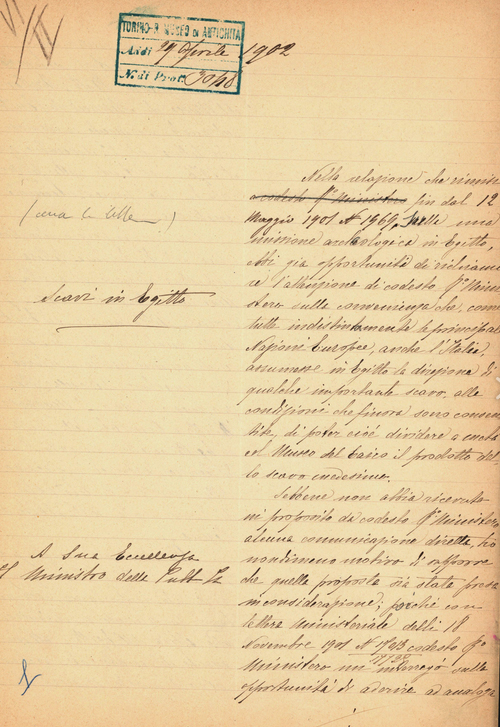 TORINO-R. MUSEO DI ANTICHITÀ
Addì 29 Aprile 1902
N. di Prot.
Scavi in Egitto
A Sua Eccellenza
il Ministro della Pubb.
Nella relazione che rimisi
a codesto R° Ministero fin dal 12
Maggio 1901 N° 1969, sulla una
missione archeologica in Egitto,
ebbi già opportunità di richiama
re l'attenzione di codesto R° Mini
stero sulla convenienza che, come
tutte indistintamente le principali
Nazioni Europee, anche l'Italia,
assumesse in Egitto la direzione di
qualche importante scavo, alle
condizioni che finora sono consen
tite, di poter cioè dividere a metà
col Museo del Cairo il prodotto del
lo scavo medesimo.
Sebbene non abbia ricevuto
in proposito da codesto R° Ministero
alcuna comunicazione diretta, ho
nondimeno motivo di supporre
che quella proposta sia stata presa
in considerazione; perché con
lettera Ministeriale delli 18
Novembre 1901 N° codesto R°
Ministero mi interrogò sulla
opportunità di aderire ad analoga